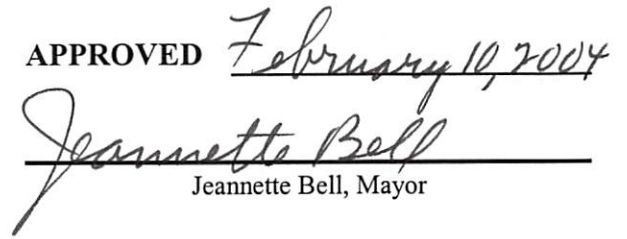 APPROVED February 10, 2004
Jeannette Bell
Jeannette Bell, Mayor